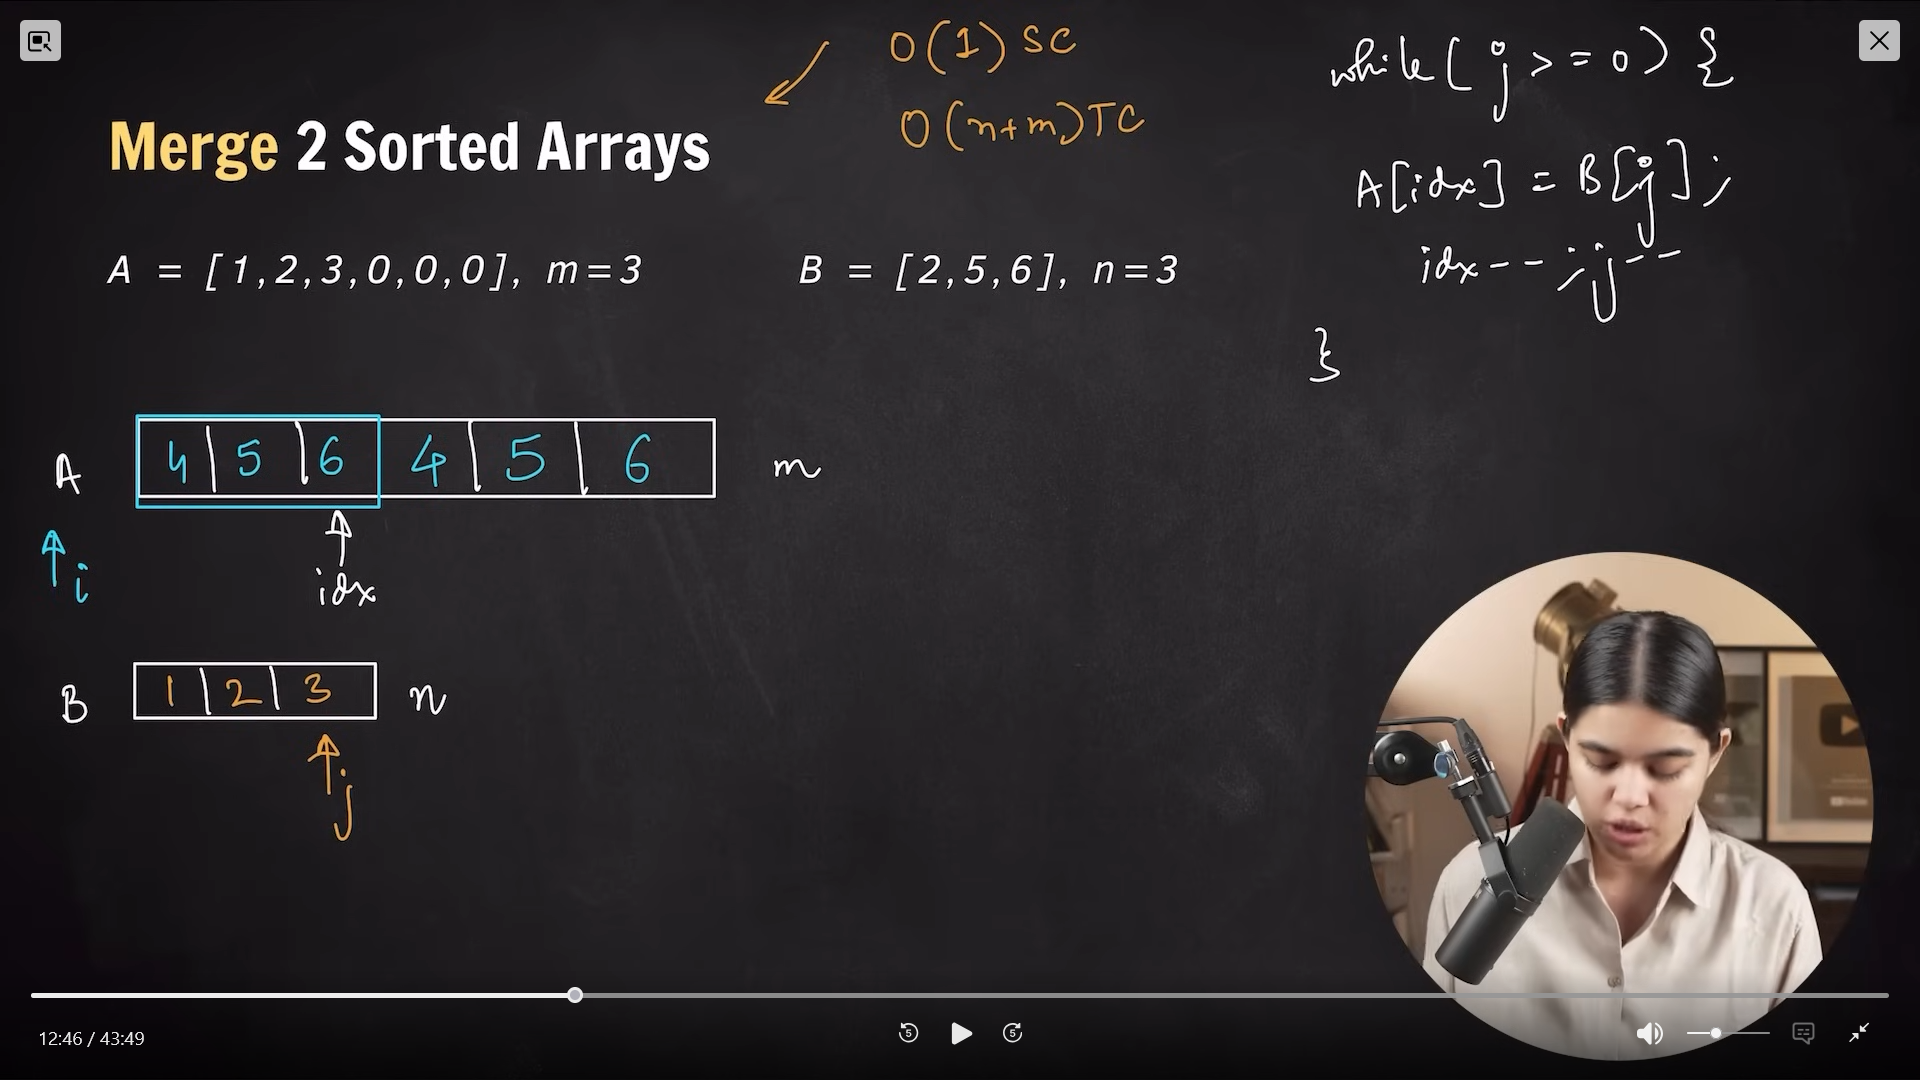 O(1) SC
O(n+m) TC
Merge 2 Sorted Arrays
A = [1,2,3,0,0,0], m=3
B = [2,5,6], n=3
while( j >= 0) {
A[idx] = B[j];
idx--; j--
}
A 4 5 6 4 5 6 m
i
idx
B 1 2 3 n
j
12:46 / 43:49
5
5